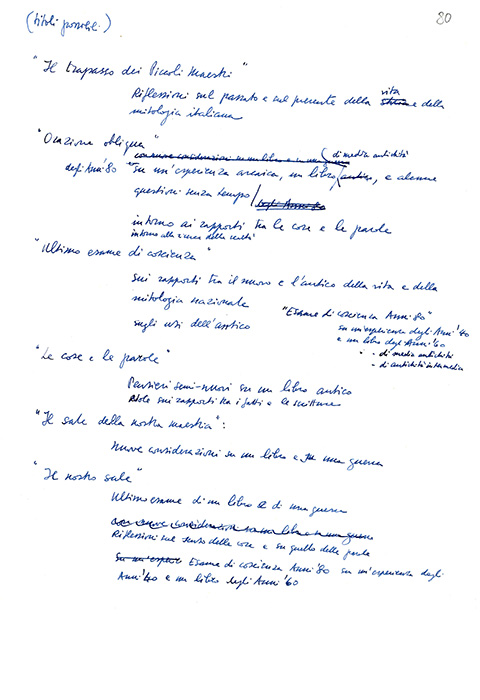 (titoli possibili)
80
"Il trapasso dei Piccoli Maestri"
vita
Riflessioni sul passato e sul presente della storia e della
mitologia italiana
"Orazione obliqua"
con nuove considerazioni su un libro e su una
di media antichità
degli Anni '80 su un'esperienza arcaica, un libro antico, e alcune
questioni senza tempo
degli Anni 80
intorno ai rapporti tra le cose e le parole
intorno alla
"Ultimo esame di coscienza"
sui rapporti tra il nuovo e l'antico della vita e della
mitologia nazionale
sugli usi dell'antico
"Esame di coscienza Anni '80"
su un'esperienza degli Anni '40
e un libro degli Anni '60
" - di media antichità
- di antichità intermedia
"Le cose e le parole"
Pensieri semi-nuovi su un libro antico
Note sui rapporti tra i fatti e le scritture
"Il sale della nostra maestria":
Nuove considerazioni su un libro e su una guerra
"Il nostro sale"
Ultimo esame di un libro e di una guerra
con nuove considerazioni su un libro e su una guerra
Riflessioni sul senso delle cose e su quello delle parole
Su un'esper Esame di coscienza Anni '80 su un'esperienza degli
Anni '40 e un libro degli Anni '60